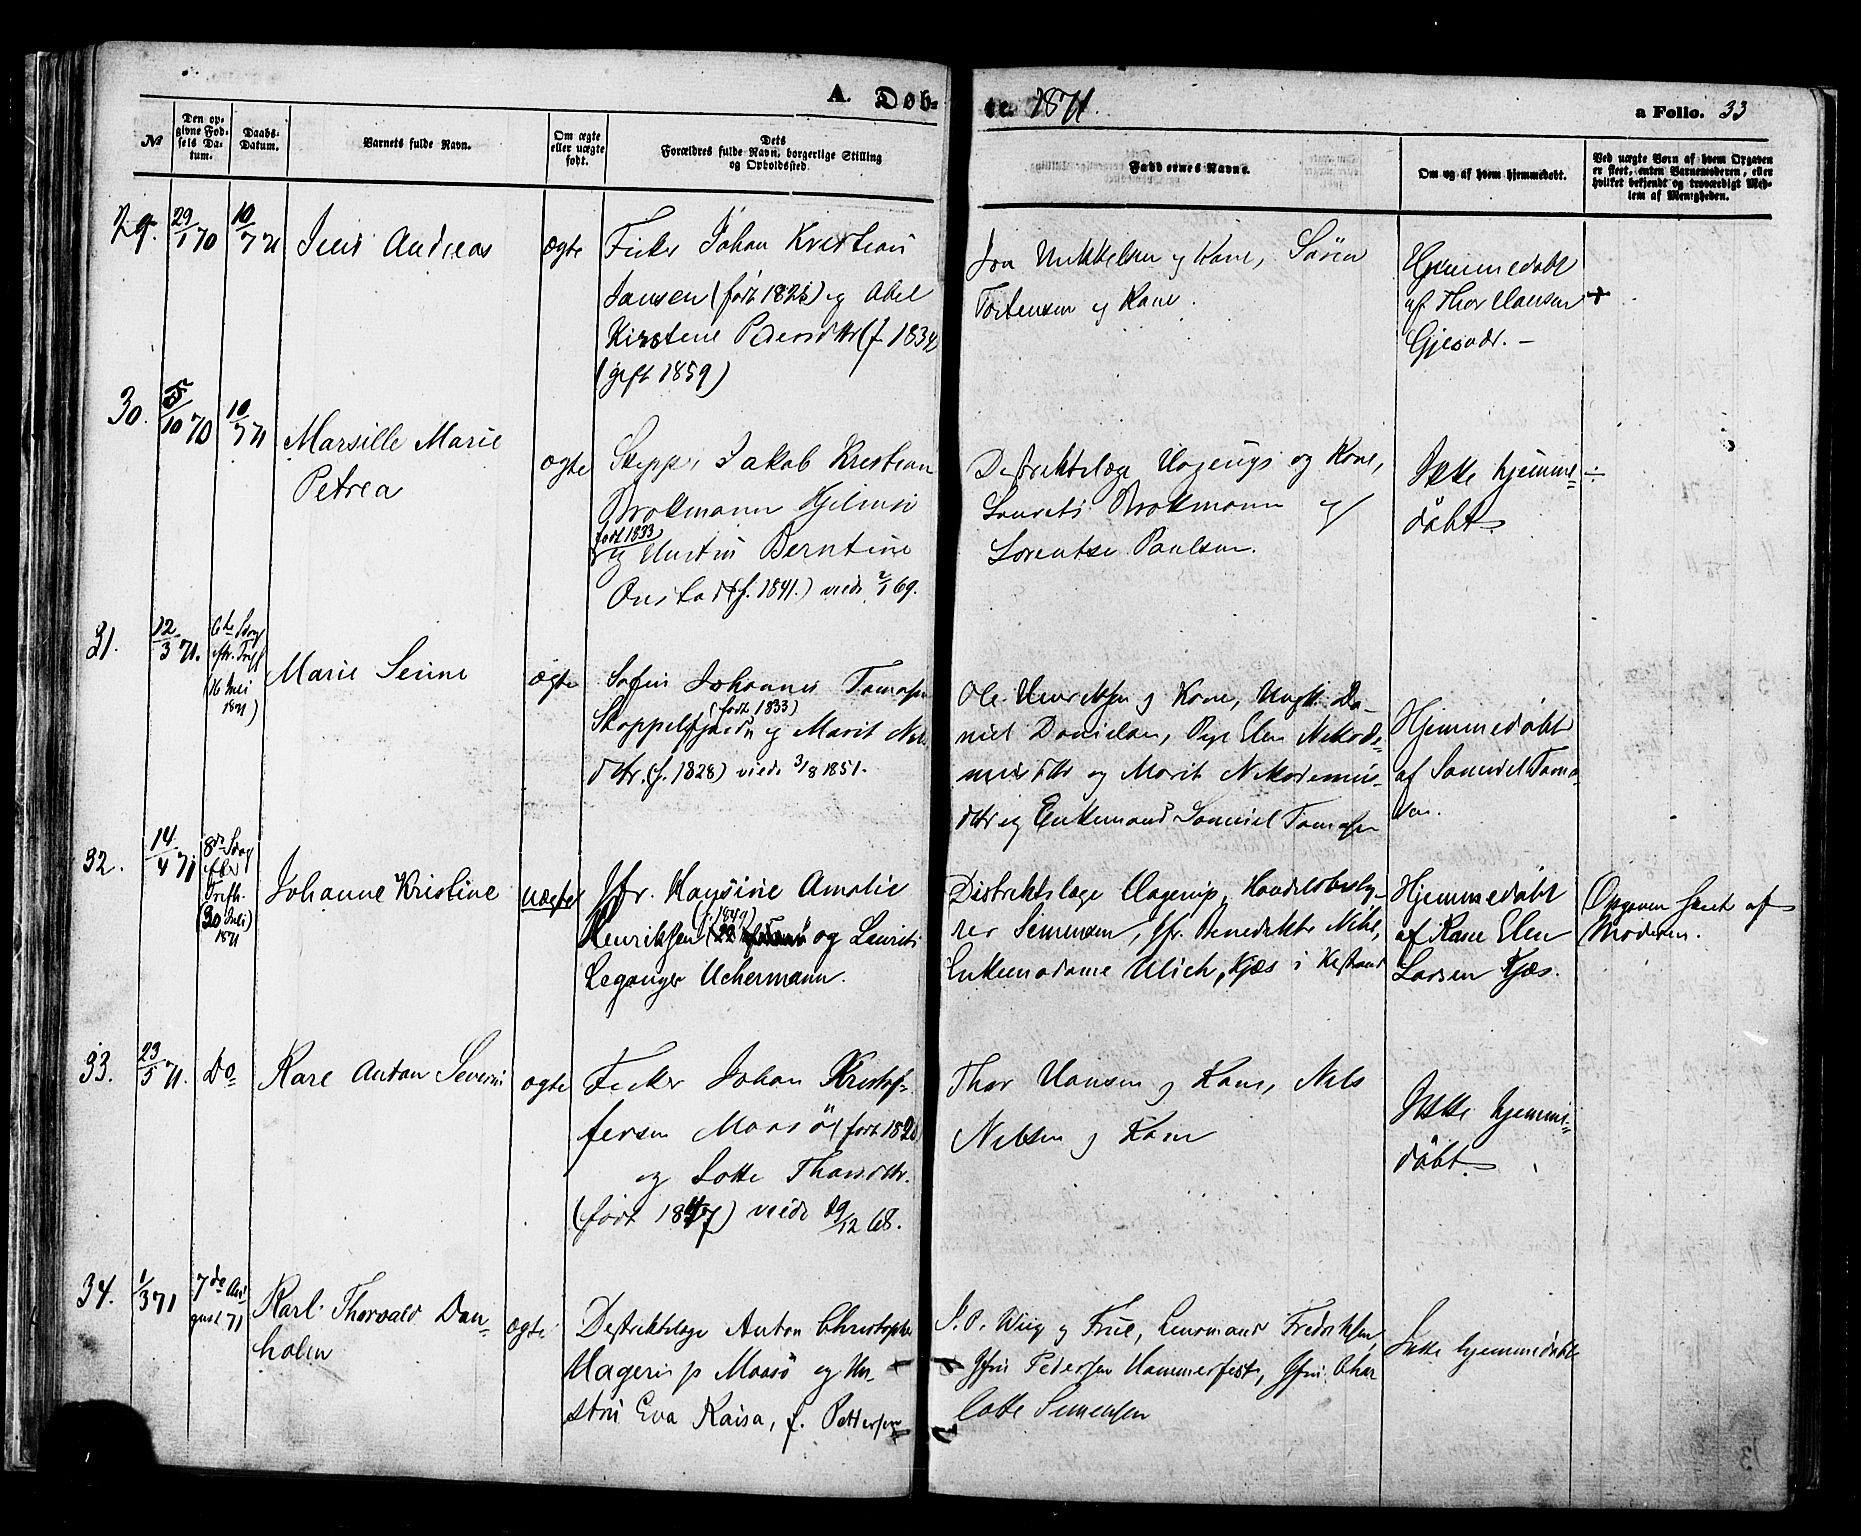 A. Døb-
te. 1871.
a Folio. 33
№
Den op-
givne Fød-
sels Da-
tum.
Daabs-
Datum.
Barnets fulde Navn.
Om ægte
eller uægte
født.
Dets
Forældres fulde Navn, borgerlige Stilling
og Opholdssted.
Faddernes Navne.
Om og af hvem hjemmedøbt.
Ved uægte Børn af hvem Opgaven
er skeet, enten Barnemoderen, eller
hvilket bekjendt og troværdigt Med-
lem af Menigheden.
29. 29/1 70 10/7 71 Jens Andreas ægte
Fisker Johan Kristian
Jansen (født 1825) og Abel
Kirstene Pedersdttr (f. 1834
(gift 1859)
Mikkelsen og Kone, Søren
Tortensen og Kone.
Hjemmedøbt
af Thor Hansen +
Gjesvær. –
30. 5/10 70 10/7 71
Marsille Marie
Petrea
ægte
Jakob Kristian
Brokmann Hjelmsö
født 1833
og Berntine
Onstad (f. 1841.) viede 2/1 69.
Distriktslæge Hagerup og Kone,
Laurits Brokmann og
Lorentse Paulsen.
Ikke hjemme= ÷
døbt
31. 12/3 71.
6te Søndg
eftr. Trift
(16 Juli
1871)
Marie Serine
ægte
Sofin Johannes Tomasen
(født 1833)
og Marit Nils
dttr. (f. 1828) viede 3/8 1851.
Ole Henriksen og Kone, Ungk. Da-
niel Danielsen, Pige Elen Nikode=
musdttr og Marit Nikodemus-
dttr og Enkemand Samuel Tomasen
Hjemmedøbt
af Samuel Toma-
sen.
32. 14/4 71
8de Søndg
efter
Trefh.
(30 Juli)
1871
Johanne Kristine
uægte
Jfr. Hansine Amalie
(f. 1849)
Henriksen og Laurits
Leganger Uchermann.
Distriktslæge Hagerup, Handelsbesty-
rer Simensen, Jfr. Benedikte
Enkemadame Ulich, Kjæs i Kistrand
Hjemmedøbt
af Kone Elen
Larsen Kjæs.
Opgaven skeet af
Moderen.
33. 23/5 71. Do
Kare Anton Severin
ægte
Fisker Johan Kristof-
fersen Maasö (født 1820
og Lotte Thorsdttr.
(født 1847) viede 29/12 68.
Thor Hansen og Kone, Nils
Nilsen og Kone
Ikke hjemme=
døbt
34. 1/3 71
7de Au-
gust 71
Karl Thorvald Dan-
holm
ægte
Distriktslæge Anton Christopher
Hagerup Maasö og Hu-
stru Eva Kaisa, f. Pettersen
J. O. Wiig og Frue, Lensmand Fredriksen,
Jfru Pedersen Hammerfest, Jfru. Char
lotte Simensen
Ikke hjemmedøbt